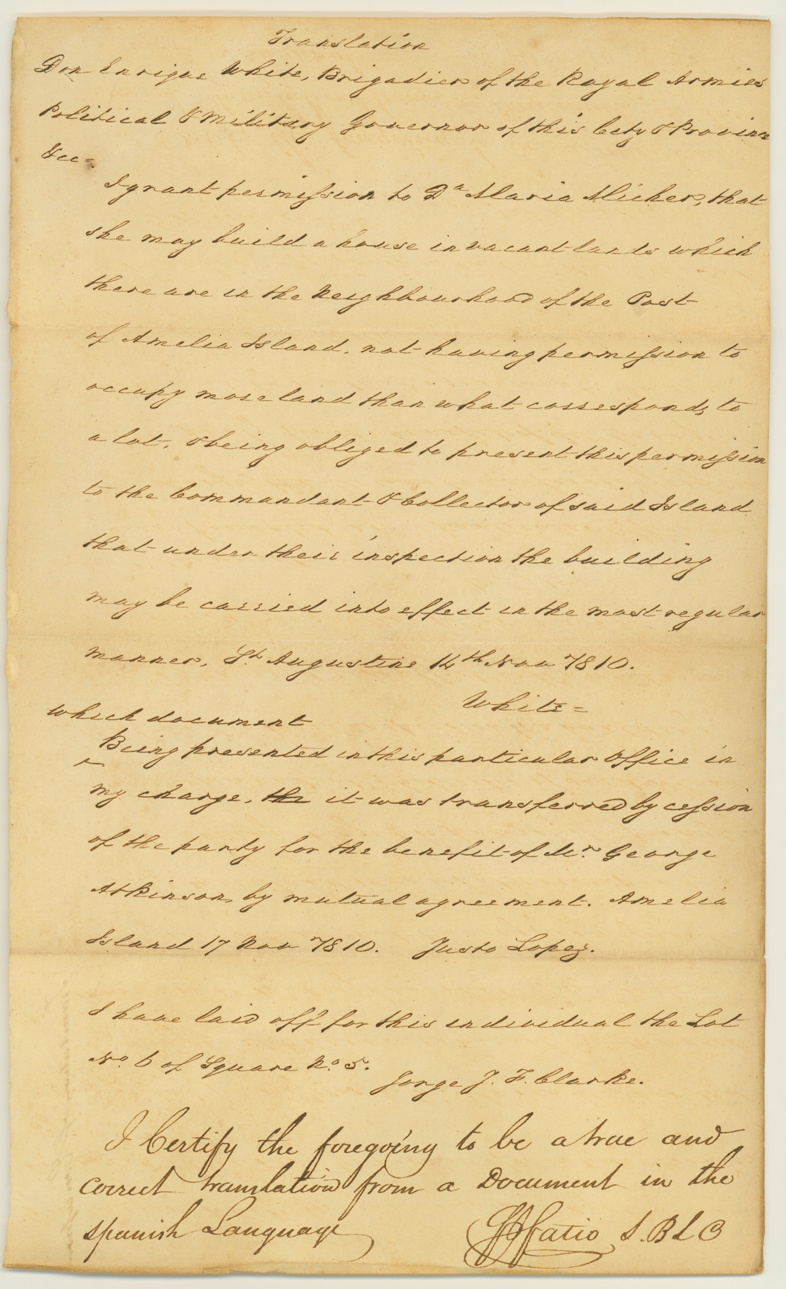 Translation
Don Enrique White, Brigadier of the Royal Armies
Political & Military Governor of this City & Province
&cc.
I grant permission to Da Maria Micher, that
she may build a house in vacant lands which
there are in the Neighbourhood of the Post
of Amelia Island, not having permission to
occupy more land than what corresponds to
a lot, & being obliged to present this permission
to the Commandant & Collector of said Island
that under their inspection the building
may be carried into effect in the most regular
manner, St Augustine 14th Nov 1810.
White =
which document
Being presented in this particular Office in
my charge, the it was transferred by cession
of the party for the benefit of Mr. George
Atkinson, by mutual agreement. Amelia
Island 17 Nov 1810. Justo Lopez.
I have laid off for this individual the Lot
No 6 of Square No 5.
Jorge J. F. Clarke.
I Certify the foregoing to be a true and
correct translation from a Document in the
Spanish Language
Fatio S. B L C